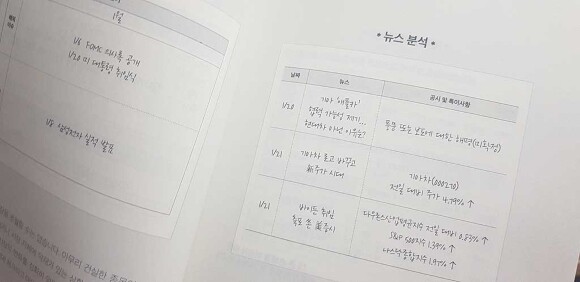 1월
1/6 FOMC 의사록 공개
1/20 미 대통령 취임식
1/8 삼성전자 실적 발표
• 뉴스 분석 •
날짜 뉴스 공시 및 특이사항
1/20
기아 '애플카'
협력 가능성 제기...
현대차 아닌 이유는?
풍문 또는 보도에 대한 해명(미확정)
1/21
기아차 로고 바꾸고
新주가 시대
기아차(000270)
전일 대비 주가 4.79% ↑
1/21
바이든 취임
축포 쏜 美 증시
다우존스산업평균지수 전일 대비 0.83% ↑
S&P 500지수 1.39% ↑
나스닥종합지수 1.97% ↑